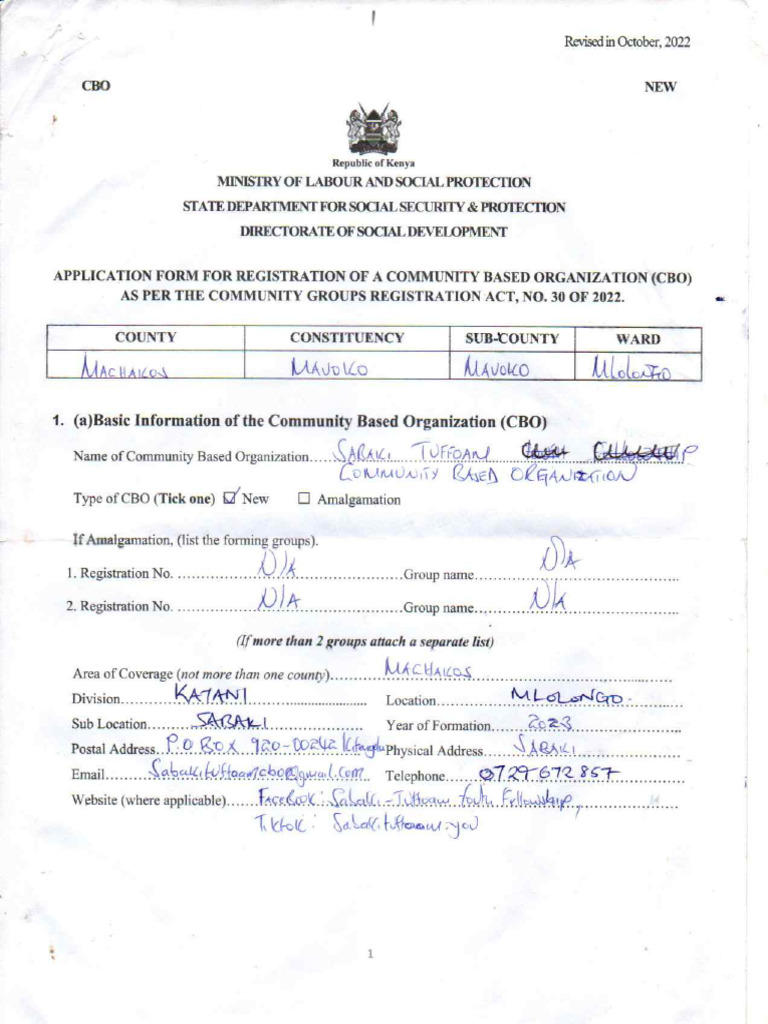 Revised in October, 2022
CBO NEW
Republic of Kenya
MINISTRY OF LABOUR AND SOCIAL PROTECTION
STATE DEPARTMENT FOR SOCIAL SECURITY & PROTECTION
DIRECTORATE OF SOCIAL DEVELOPMENT
APPLICATION FORM FOR REGISTRATION OF A COMMUNITY BASED ORGANIZATION (CBO)
AS PER THE COMMUNITY GROUPS REGISTRATION ACT, NO. 30 OF 2022.
COUNTY CONSTITUENCY SUB-COUNTY WARD
MACHAKOS MAVOKO MAVOKO MLOLONGO
1. (a)Basic Information of the Community Based Organization (CBO)
Name of Community Based Organization..... SABAKI TUFFOAM
COMMUNITY BASED ORGANIZATION
Type of CBO (Tick one) ☑ New ☐ Amalgamation
If Amalgamation, (list the forming groups).
1. Registration No. ..... N/A ..... Group name..... N/A
2. Registration No. ..... N/A ..... Group name..... N/A
(If more than 2 groups attach a separate list)
Area of Coverage (not more than one county)..... MACHAKOS
Division..... KATANI ..... Location..... MLOLONGO.
Sub Location..... SABAKI ..... Year of Formation..... 2023
Postal Address... P.O BOX 920-00242 Kitengela Physical Address..... SABAKI
Email..... Sabakituffoamcbo@gmail.com .. Telephone..... 0729 672 857
Website (where applicable)..... FACEBOOK: Sabaki-Tuffoam Youth Fellowship,
Tiktok: Sabakituffoam.you
1